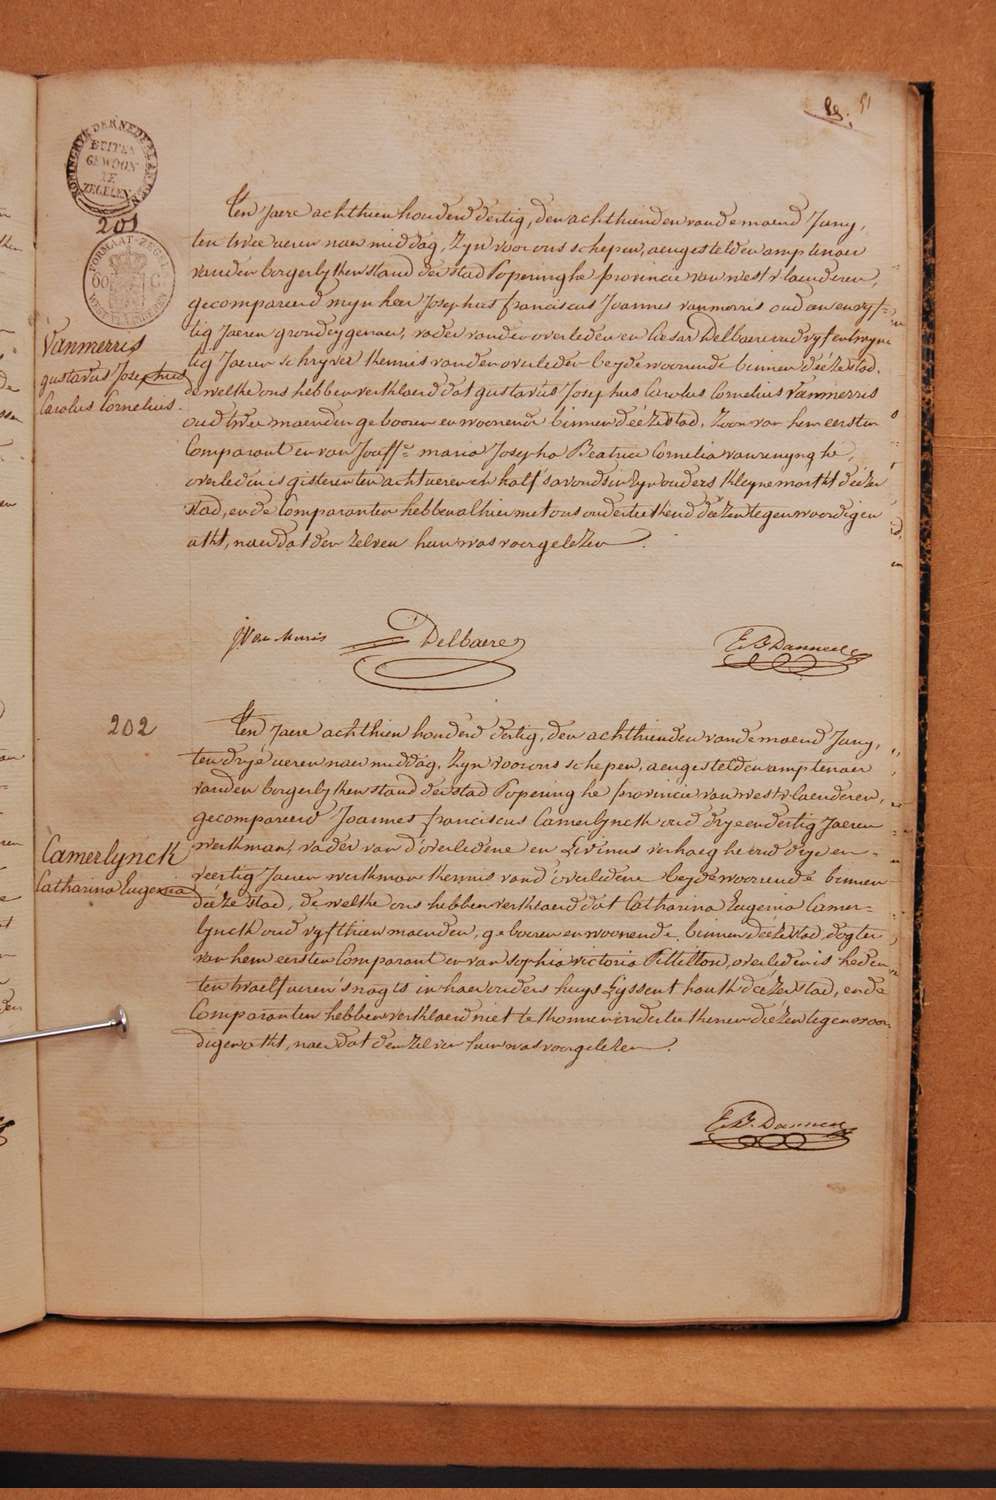 51
KONINGRYK DER NEDERLANDEN
BUITEN
GEWOON
TE
ZEGELEN
201
FORMAAT ZEGEL
60 C
WEST-VLAENDEREN
Vanmerris
gustavus Josephus
Carolus Cornelius.
Ten Jaere achthien honderd dertig, den achthienden van de maend Juny,
ten twee ueren naer middag, Zyn voor ons schepen, aengestelden amptenaer
van den borgerlyken stand der stad Poperinghe provincie van westvlaenderen,
gecompareerd mynheer Josephus franciscus Joannes vanmerris oud
tig Jaeren grondeygenaer, vader van den overleden en Caesar Delbaere oud vyfentwyn
tig Jaeren schryver kennis van den overleden beyde woonende binnen deéze stad,
de welke ons hebben verklaerd dat gustavus Josephus Carolus Cornelius Vanmerris
oud twee maenden geboren en woonende binnen deéze stad, Zoon van hem eersten
Comparant en van Jouffe. maria Josepha Beatrix Cornelia vanrenynghe,
overleden is gisteren ten acht ueren en half s'avonds in Zyn ouders kleyne markt deézer
stad, en de Comparanten hebben alhier met ons onderteekend deézen tegenwoordigen
akt, naer dat den zelven hun was voorgelezen.
JVan Merris
Delbaere
202
Camerlynck
Catharina Eugenia
Ten Jaere achthien honderd dertig, den achthienden van de maend Juny,
ten dryé ueren naer middag, Zyn voor ons schepen, aengestelden amptenaer
van den borgerlyken stand der stad Poperinghe provincie van westvlaenderen,
gecompareerd Joannes franciscus Camerlynck oud dryeendertig Jaeren
werkman, vader van d'overledene en Livinus verhaeghe oud drye en-
veertig Jaeren werkman kennis van d'overledene beyde woonende binnen
deéze stad, de welke ons hebben verklaerd dat Catharina Eugenia Camer=
lynck oud vyfthien maenden, geboren en woonende binnen deéze stad, dogter
van hem eersten Comparant en van Sophia victoria Pittillon, overleden is heden
ten twaelf ueren s'nagts in haer ouders huys deézer stad, en de
Comparanten hebben verklaerd niet te konnen onderteekenen deézen tegenwoor=
digen akt, naer dat den zelven hun was voorgelezen.